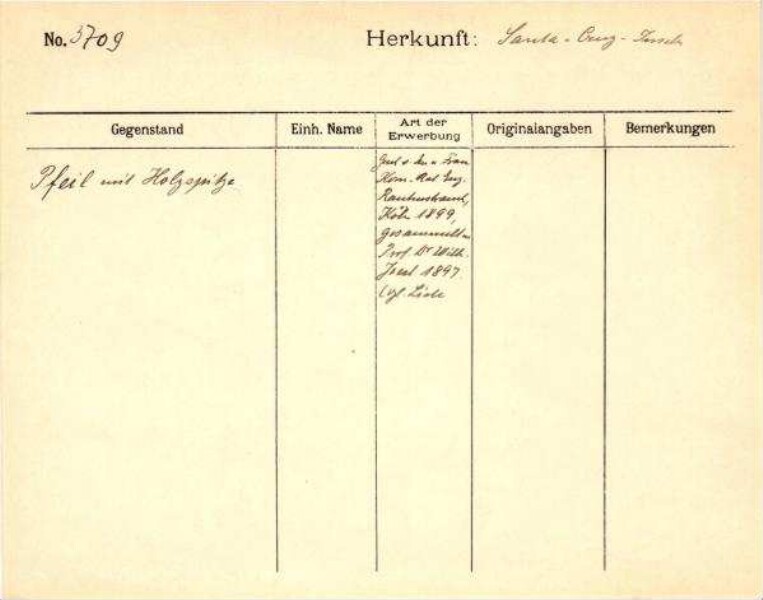 No. 3709
Herkunft: Santa-Cruz-Inseln
Gegenstand
Einh. Name
Art der
Erwerbung
Originalangaben
Bemerkungen
Pfeil mit Holzspitze
Frau
Kom. Rat Eug.
Rautenstrauch,
Köln 1899,
gesammelt v.
Prof. Dr Wilh.
Joest 1897.
Vgl. Liste